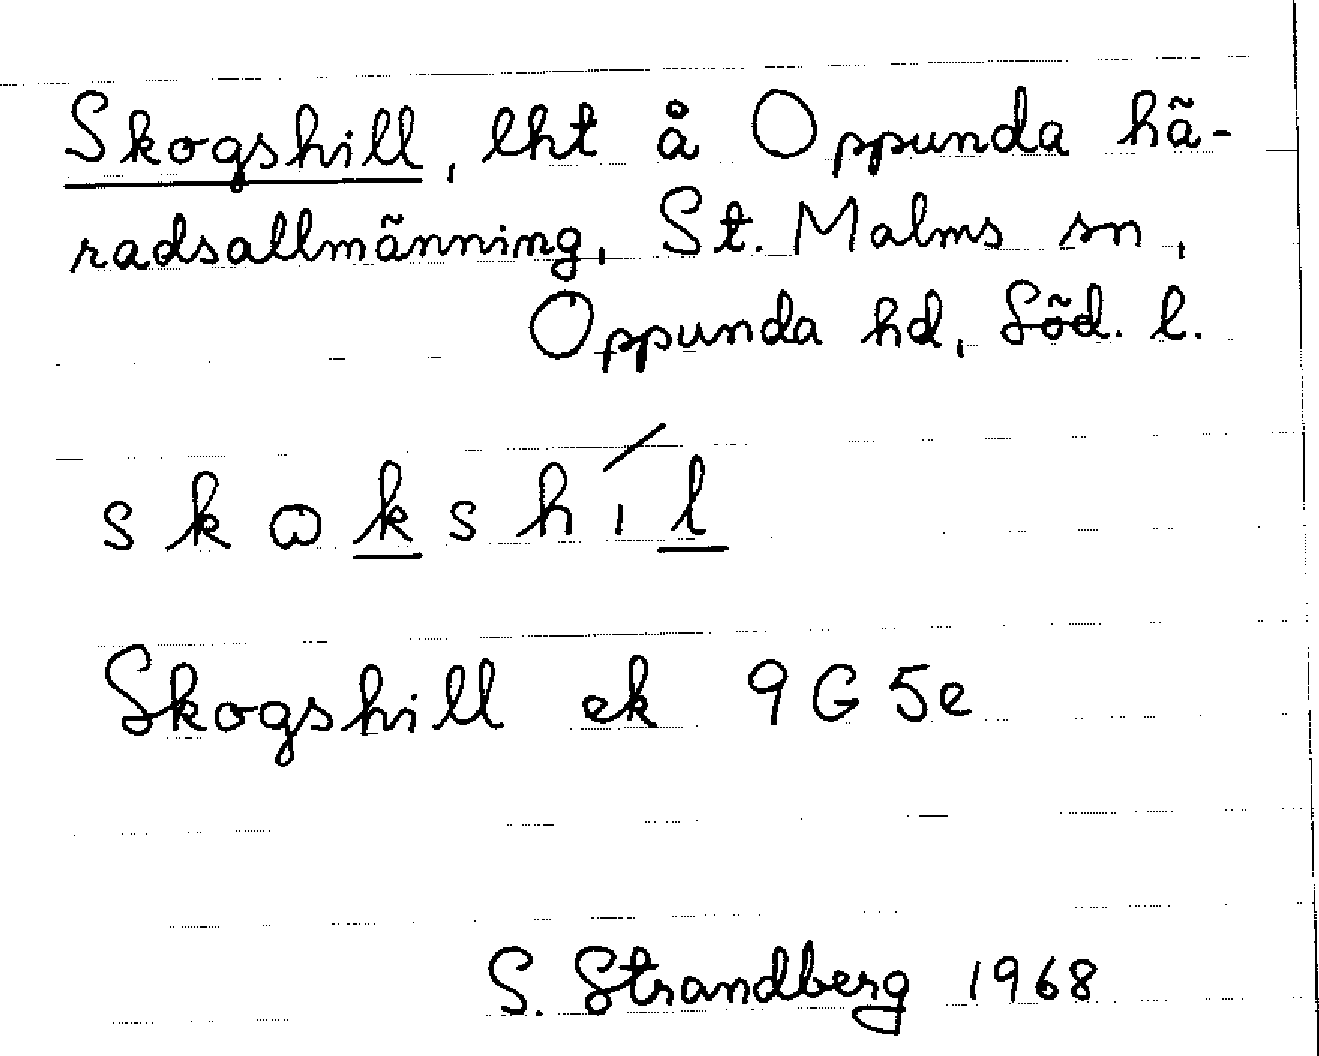 Skogshill, lht å Oppunda hä-
radsallmänning, St. Malms sn,
Oppunda hd, Söd. l.
skɷkshíl
Skogshill ek 9G5e
S. Strandberg 1968